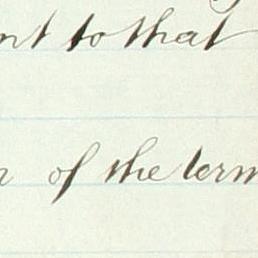 nt to that
of the term